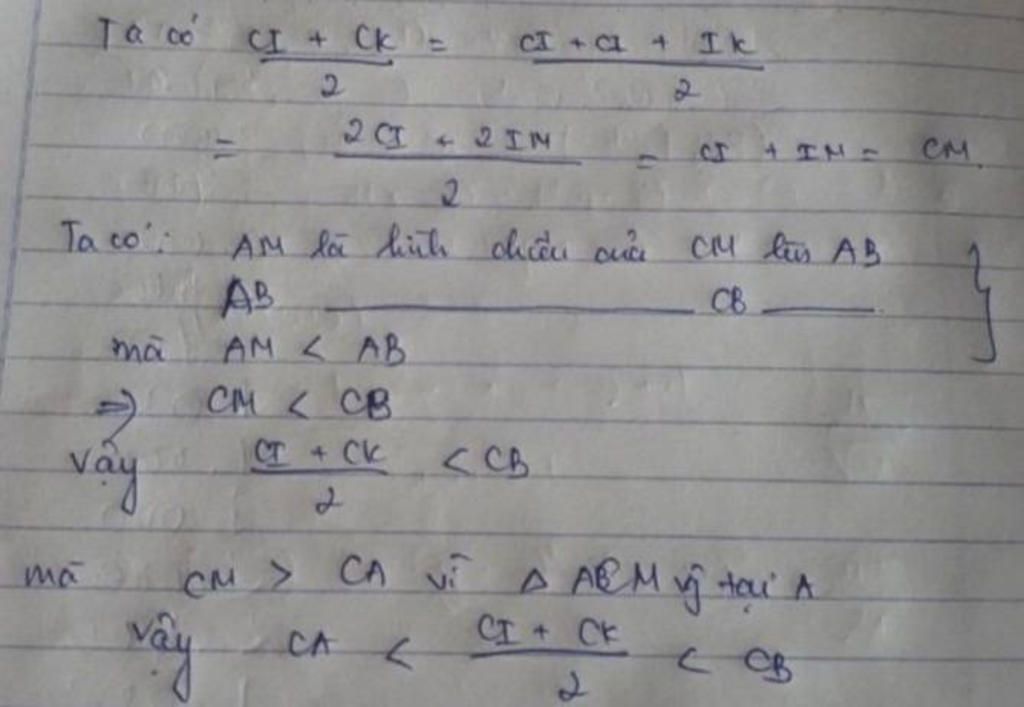 Ta có CI + CK / 2 = CI + CI + IK / 2
= 2CI + 2IM / 2 = CI + IM = CM.
Ta có: AM là hình chiếu của CM lên AB
AB ________ CB ____ }
mà AM < AB
=> CM < CB
Vậy CI + CK / 2 < CB
mà CM > CA vì Δ ACM vg tại A
Vậy CA < CI + CK / 2 < CB